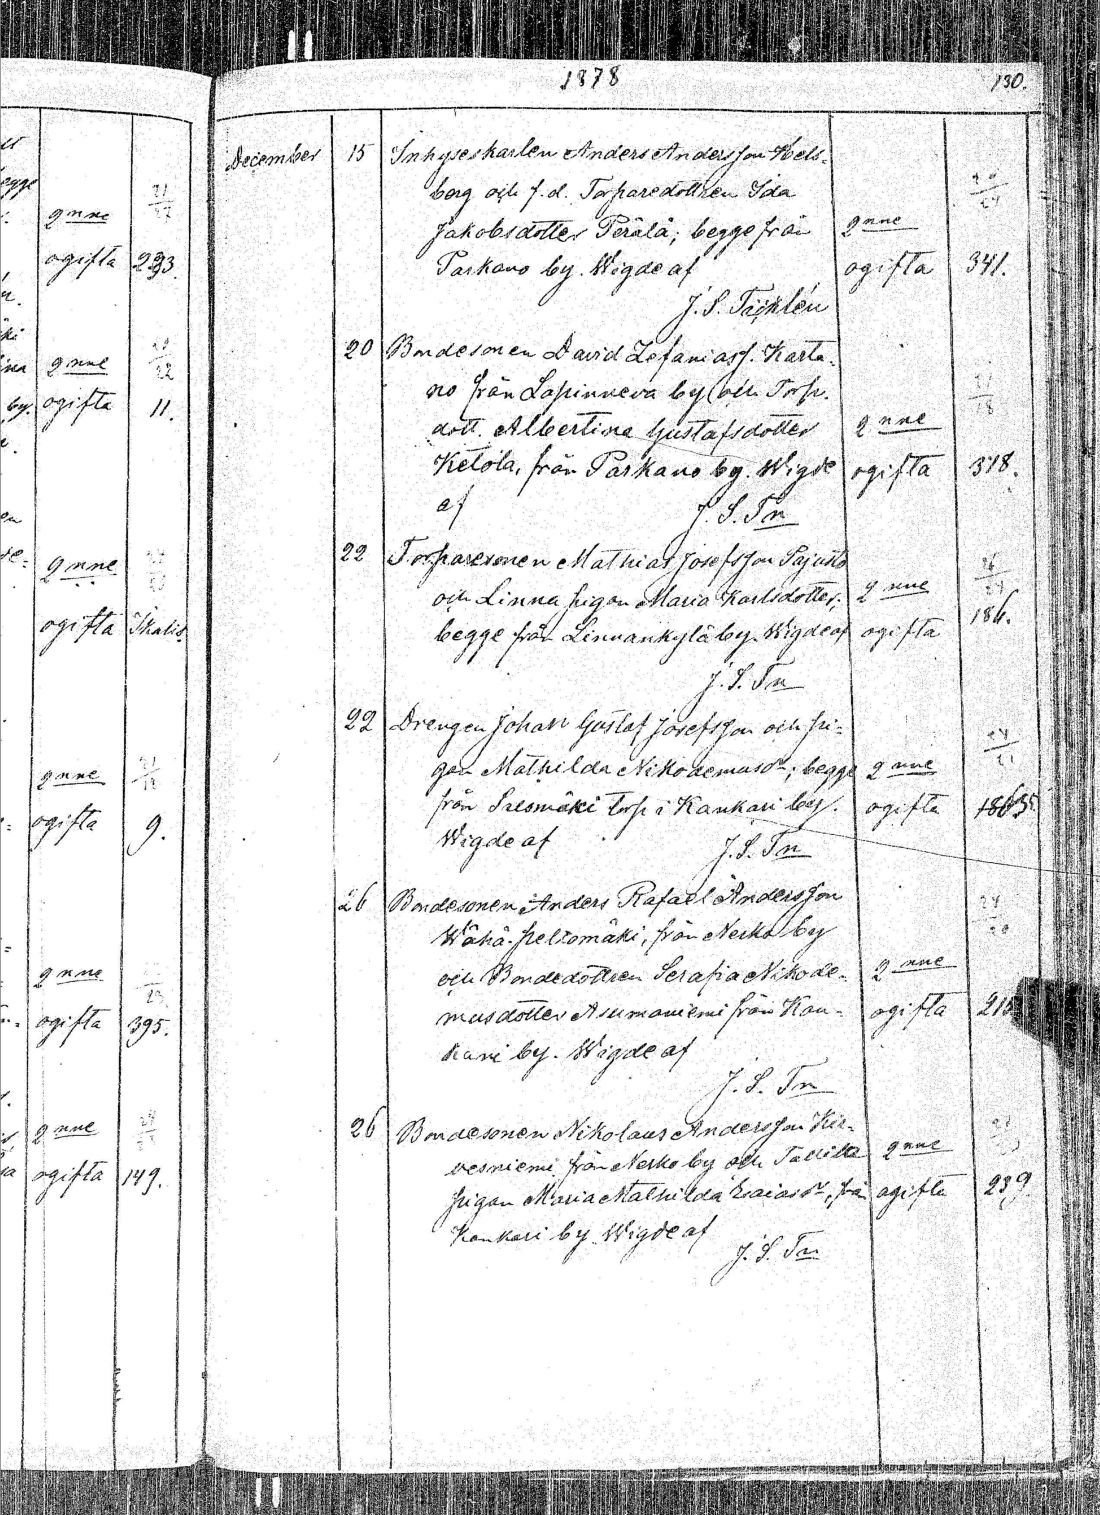 1878
130.
December 15 Inhyseskarlen Anders Andersson Hels-
borg och f.d. Torparedottren Ida
Jakobsdotter Perälä; begge från 2nne
Parkano by. Wigde af ogifta 341.
J. S. Täcklén
20 Bondesonen David Zefaniass. Karta-
no från Lapinneva by och Torp.
dott. Albertina Gustafsdotter 2nne
Ketola, från Parkano by. Wigde ogifta 318.
af J. S. Tn
22 Torparesonen Mathias Josefsson
och Linna pigan Maria Karlsdotter; 2nne
begge från Linnankylä by. Wigde af ogifta 186.
J. S. Tn
22 Drengen Johan Gustaf Josefsson och pi-
gan Mathilda Nikodemusdr; begge 2nne
från torp i Kankari by. ogifta
Wigde af J. S. Tn
26 Bondesonen Anders Rafael Andersson
Wähä-peltomäki, från Nerko by
och Bondedottren Serafia Nikode- 2nne
musdotter Asumaniemi från Kan- ogifta 215
kari by. Wigde af
J. S. Tn
26 Bondesonen Nikolaus Andersson Kir-
vesniemi från Nerko by och 2nne
pigan Maria Mathilda Esaiasdr, från ogifta 239
Kankari by. Wigde af
J. S. Tn
2nne
ogifta 293.
2nne
by. ogifta 11.
2nne
ogifta Ikalis
2nne
ogifta 9.
2nne
ogifta 395.
2nne
ogifta 149.